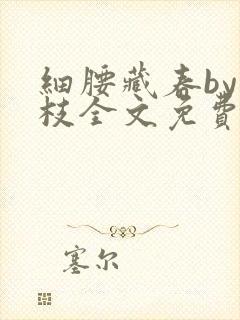 細腰藏春by
枝全文免費
塞尔